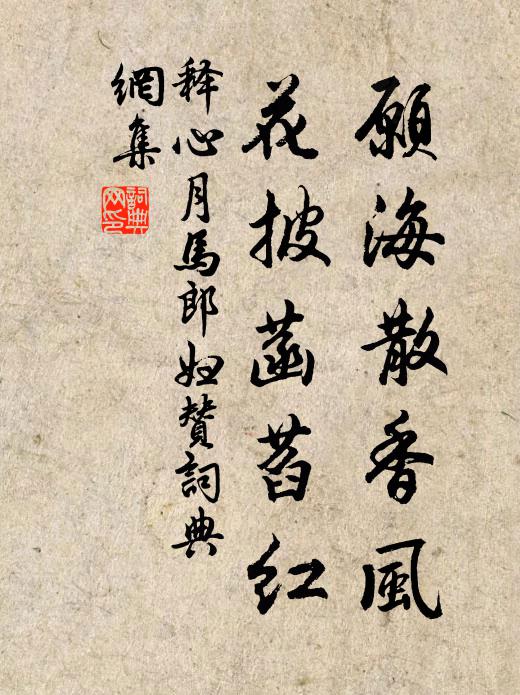 願海散香風
花披菡萏紅
释心月馬郎婦贊詞典
網集
詞典
网印